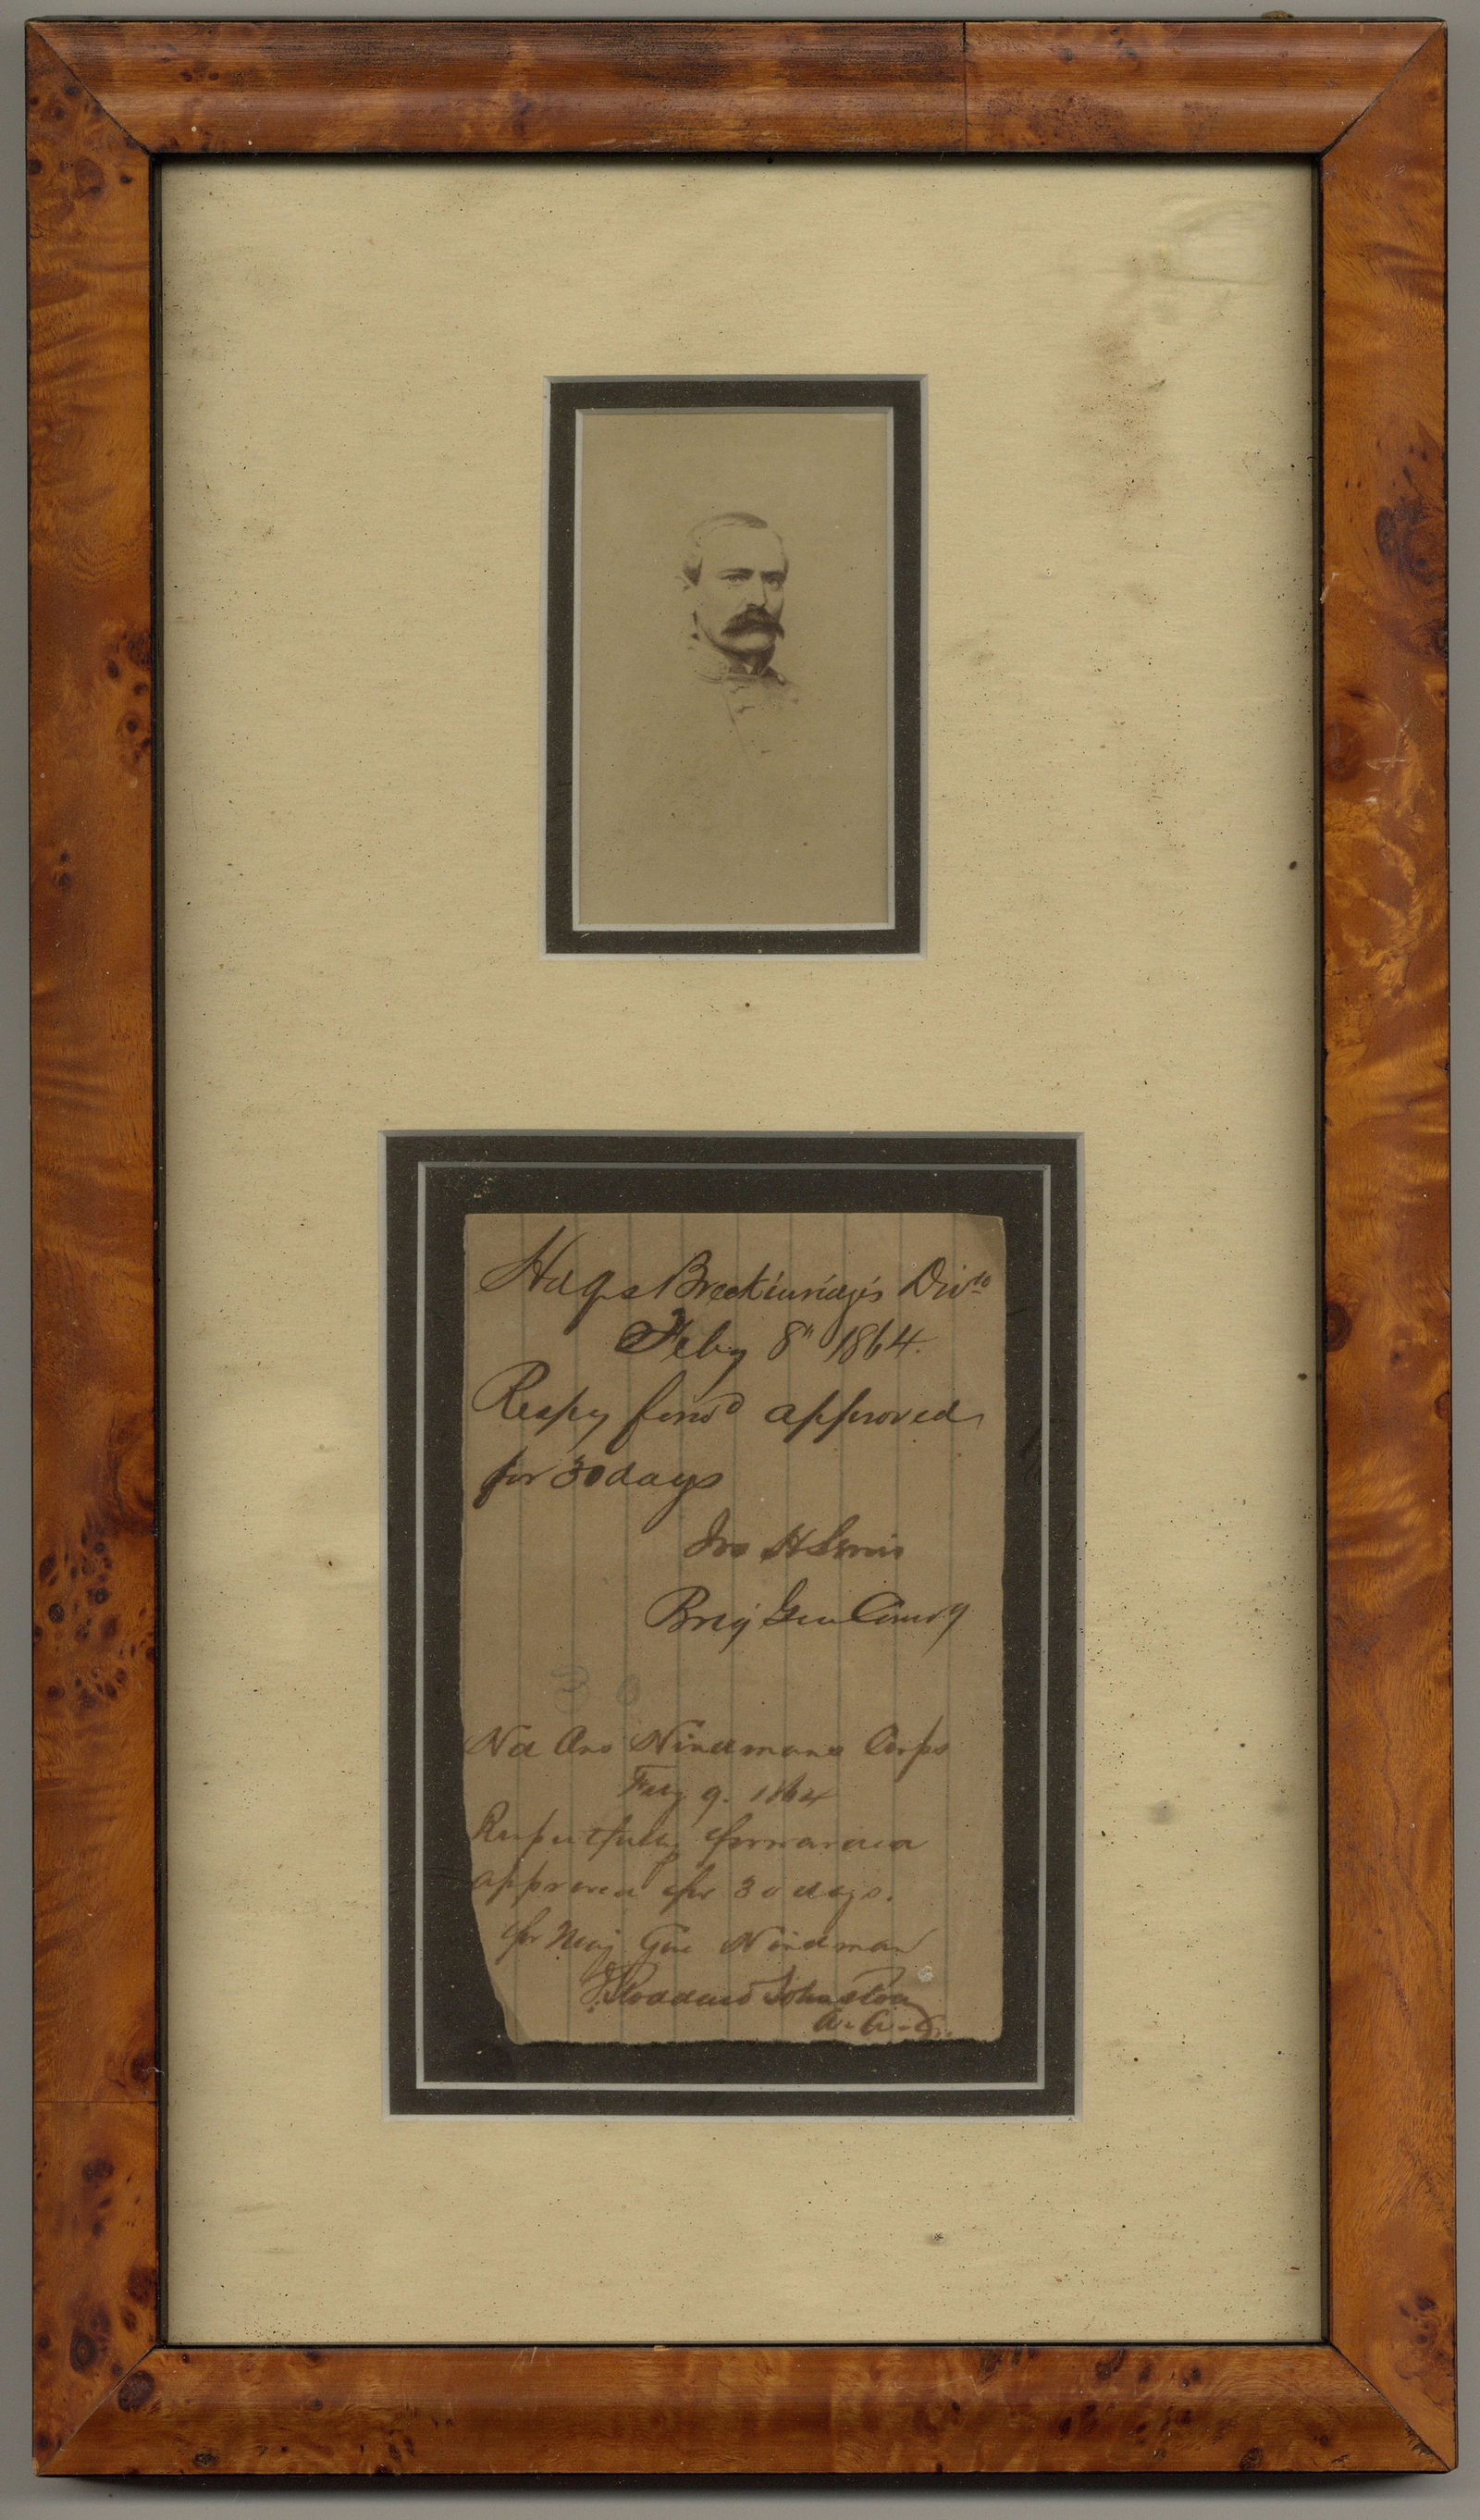 Hdqs Breckinridge's Divn
Feby 8" 1864.
Respy forwd approved
for 30 days
Jos H Lewis
Brig Gen Comdg
30
Hd Qrs Hindmans Corps
Feby 9. 1864
Respectfully forwarded
approved for 30 days.
for Maj Gen Hindman
J. Stoddard Johnston
A. A. G.